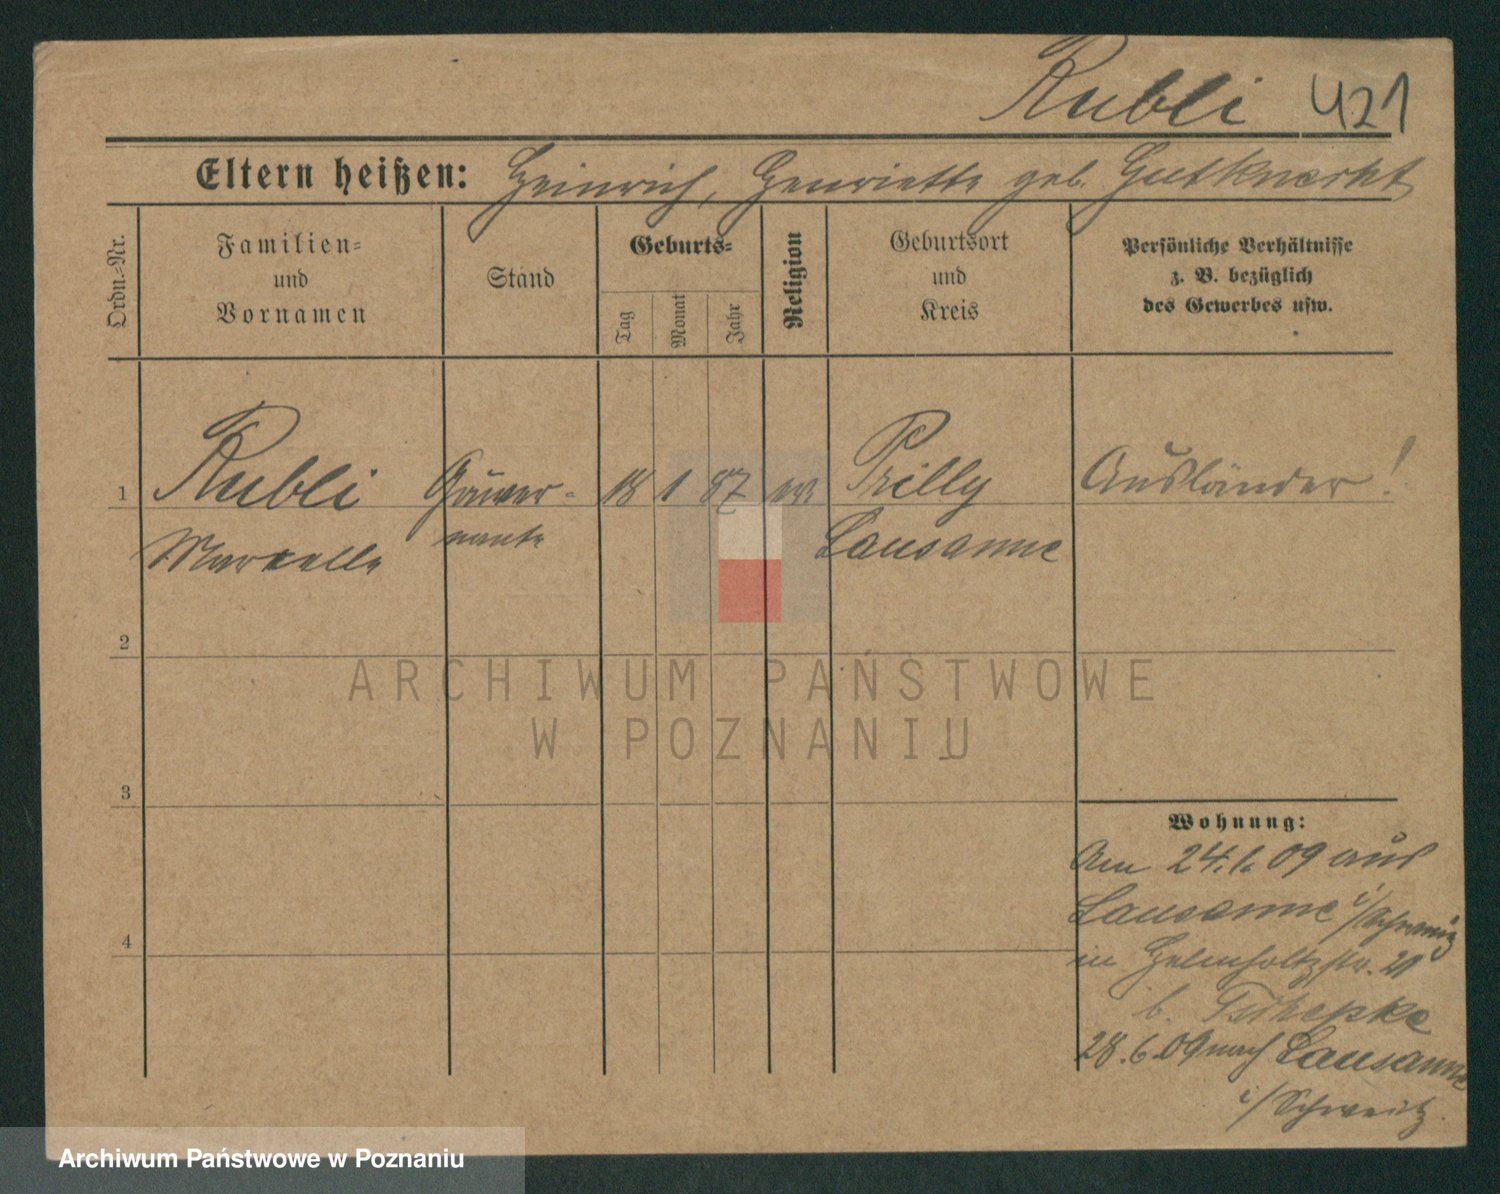 Rubli 421
Eltern heißen: Heinrich, Henriette geb. Gutknecht
Ordn.=Nr.
Familien=
und
Vornamen
Stand
Geburts=
Tag
Monat
Jahr
Religion
Geburtsort
und
Kreis
Persönliche Verhältnisse
z. B. bezüglich
des Gewerbes usw.
1 Rubli Gouver- 18 1 87 ev. Prilly Ausländer!
Marcelle nante Lausanne
2
ARCHIWUM PAŃSTWOWE
W POZNANIU
3
Wohnung:
Am 24.1.09 aus
Lausanne i/Schweiz
4
in Helmholtzstr. 21
b.
28.6.09 nach Lausanne
i/Schweitz.
Archiwum Państwowe w Poznaniu